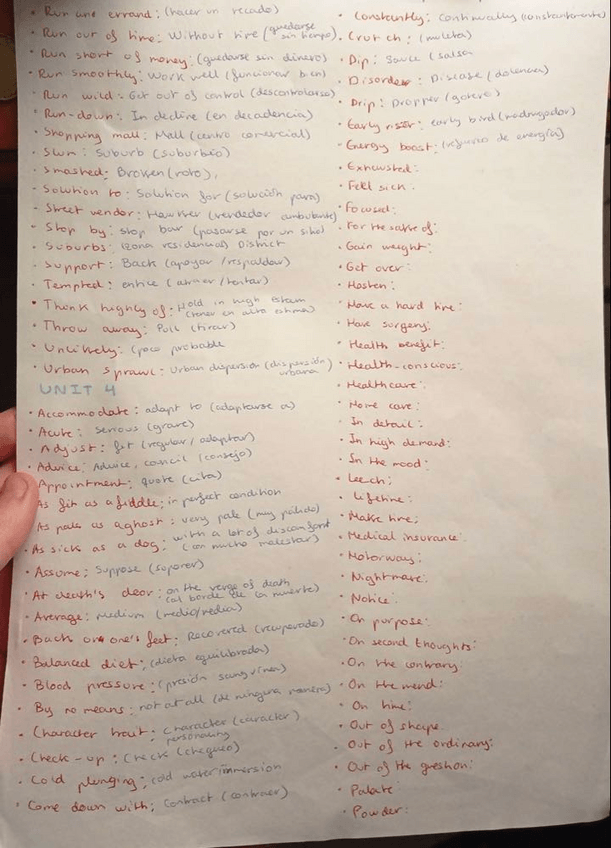 · Run an errand: (hacer un recado)
· Run out of time: Without time (quedarse sin tiempo)
· Run short of money: (quedarse sin dinero)
· Run smoothly: Work well (funcionar bien)
· Run wild: Get out of control (descontrolarse)
· Run-down: In decline (en decadencia)
· Shopping mall: Mall (centro comercial)
· Slum: Suburb (suburbio)
· Smashed: Broken (roto),
· Solution to: Solution for (solución para)
· Street vendor: Hawker (vendedor ambulante)
· Stop by: stop (pasarse por un sitio)
· Suburbs: (zona residencial) District
· Support: Back (apoyar / respaldar)
· Tempted: entice (atraer / tentar)
· Think highly of: Hold in high esteem (tener en alta estima)
· Throw away: Pull (tirar)
· Unlikely: (poco probable
· Urban sprawl: Urban dispersion (dispersión urbana)
UNIT 4
· Accommodate: adapt to (adaptarse a)
· Acute: Serious (grave)
· Adjust: fit (regular / adaptar)
· Advice: Advice, council (consejo)
Appointment: quote (cita)
As fit as a fiddle: in perfect condition
As pale as a ghost: very pale (muy pálido)
· As sick as a dog: with a lot of discomfort (con mucho malestar)
· Assume: Suppose (suponer)
· At death's door: on the verge of death (al borde de la muerte)
· Average: Medium (medio/media)
· Back on one's feet: Recovered (recuperado)
· Balanced diet: (dieta equilibrada)
· Blood pressure: (presión sanguínea)
· By no means: not at all (de ninguna manera)
· Character trait: Character (caracter) personality
· Check-up: Check (chequeo)
· Cold plunging: cold water immersion
· Come down with: Contract (contraer)
· Constantly: Continually (constantemente)
· Crutch: (muleta)
· Dip: Sauce (salsa)
· Disorder: Disease (dolencia)
· Drip: Dropper (gotero)
· Early riser: early bird (madrugador)
· Energy boost: (refuerzo de energía)
· Exhausted:
· Feel sick:
· Focused:
· For the sake of:
· Gain weight:
· Get over:
· Hasten:
· Have a hard time:
· Have surgery:
· Health benefit:
· Health-conscious:
· Healthcare:
· Home care:
· In detail:
· In high demand:
· In the mood:
· Leech:
· Lifetime:
· Make time:
· Medical insurance:
· Motorway:
· Nightmare:
· Notice:
· On purpose:
· On second thoughts:
· On the contrary:
· On the mend:
· On time:
· Out of shape.
· Out of the ordinary:
· Out of the question:
· Palate
· Powder: